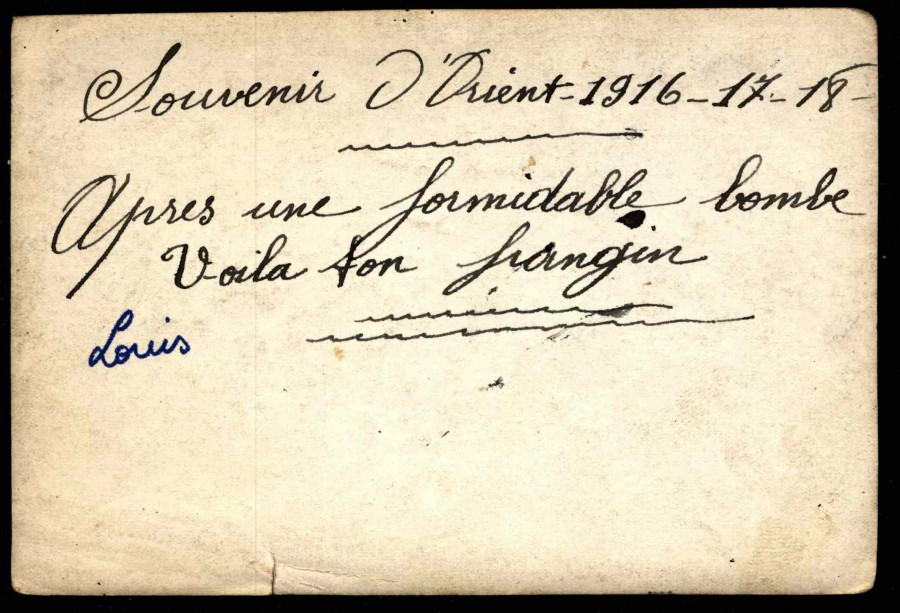 Souvenir D'Orient-1916-17-18-
Apres une formidable bombe
Voila ton frangin
Louis